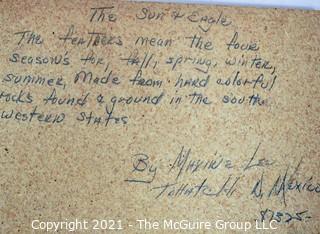 The Sun & Eagle
The feathers mean the four
season's for, fall, spring, winter,
summer, Made from hard colorful
rocks found aground in the south
western states
By Maxine Lee
Tohatchi N. Mexico
Copyright © 2021 - The McGuire Group LLC